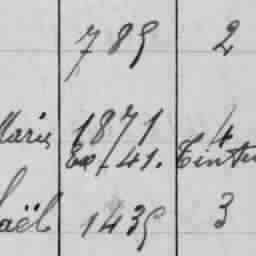 789 2
Marie 1871 4
Ex. 41. Teintu
aël 1439 3